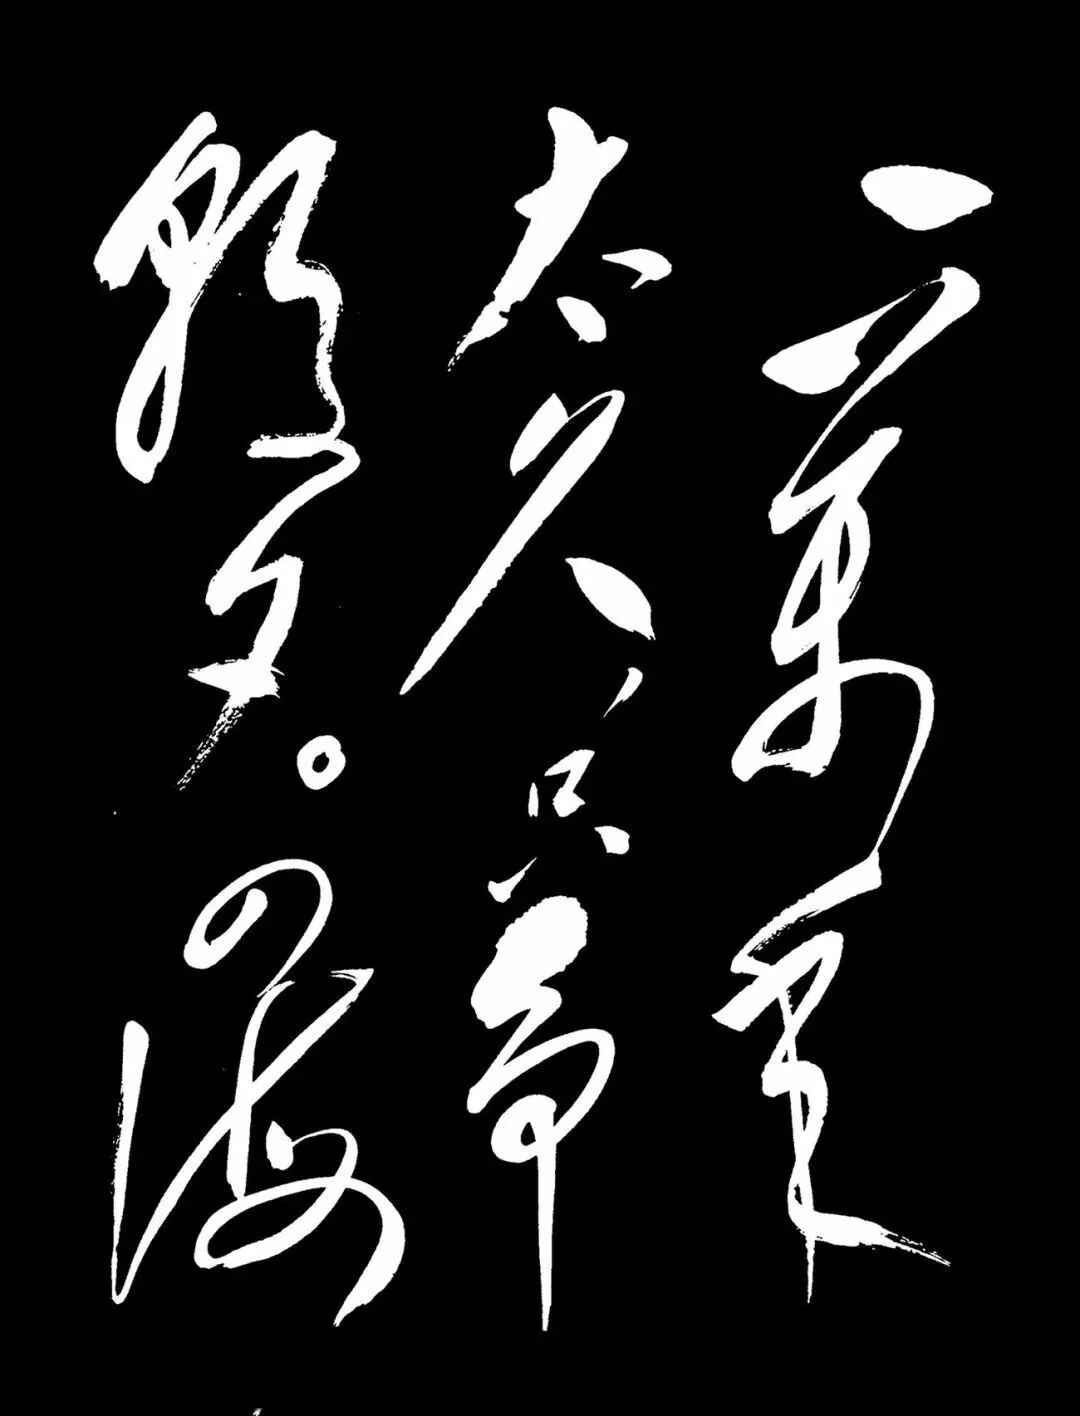 一萬年
太久,只争
朝夕。四海